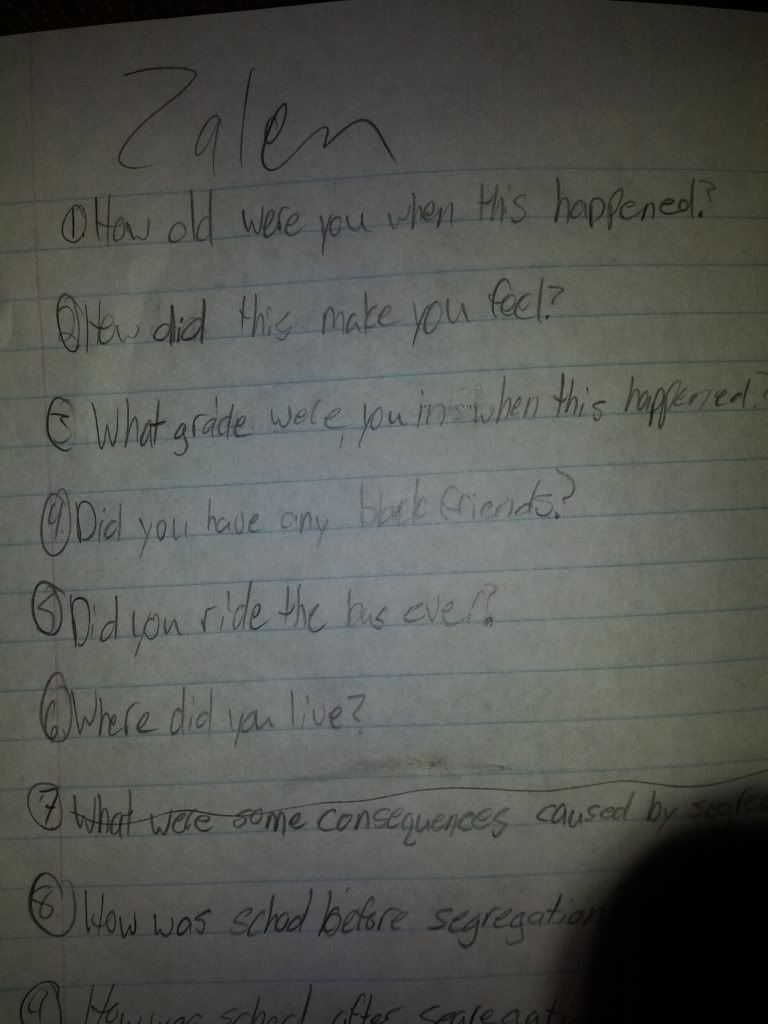 Zalen
① How old were you when this happened?
② How did this make you feel?
③ What grade were you in when this happened?
④ Did you have any black friends?
⑤ Did you ride the bus ever?
⑥ Where did you live?
⑦ What were some consequences caused by
⑧ How was school before segregation
⑨ How was school after